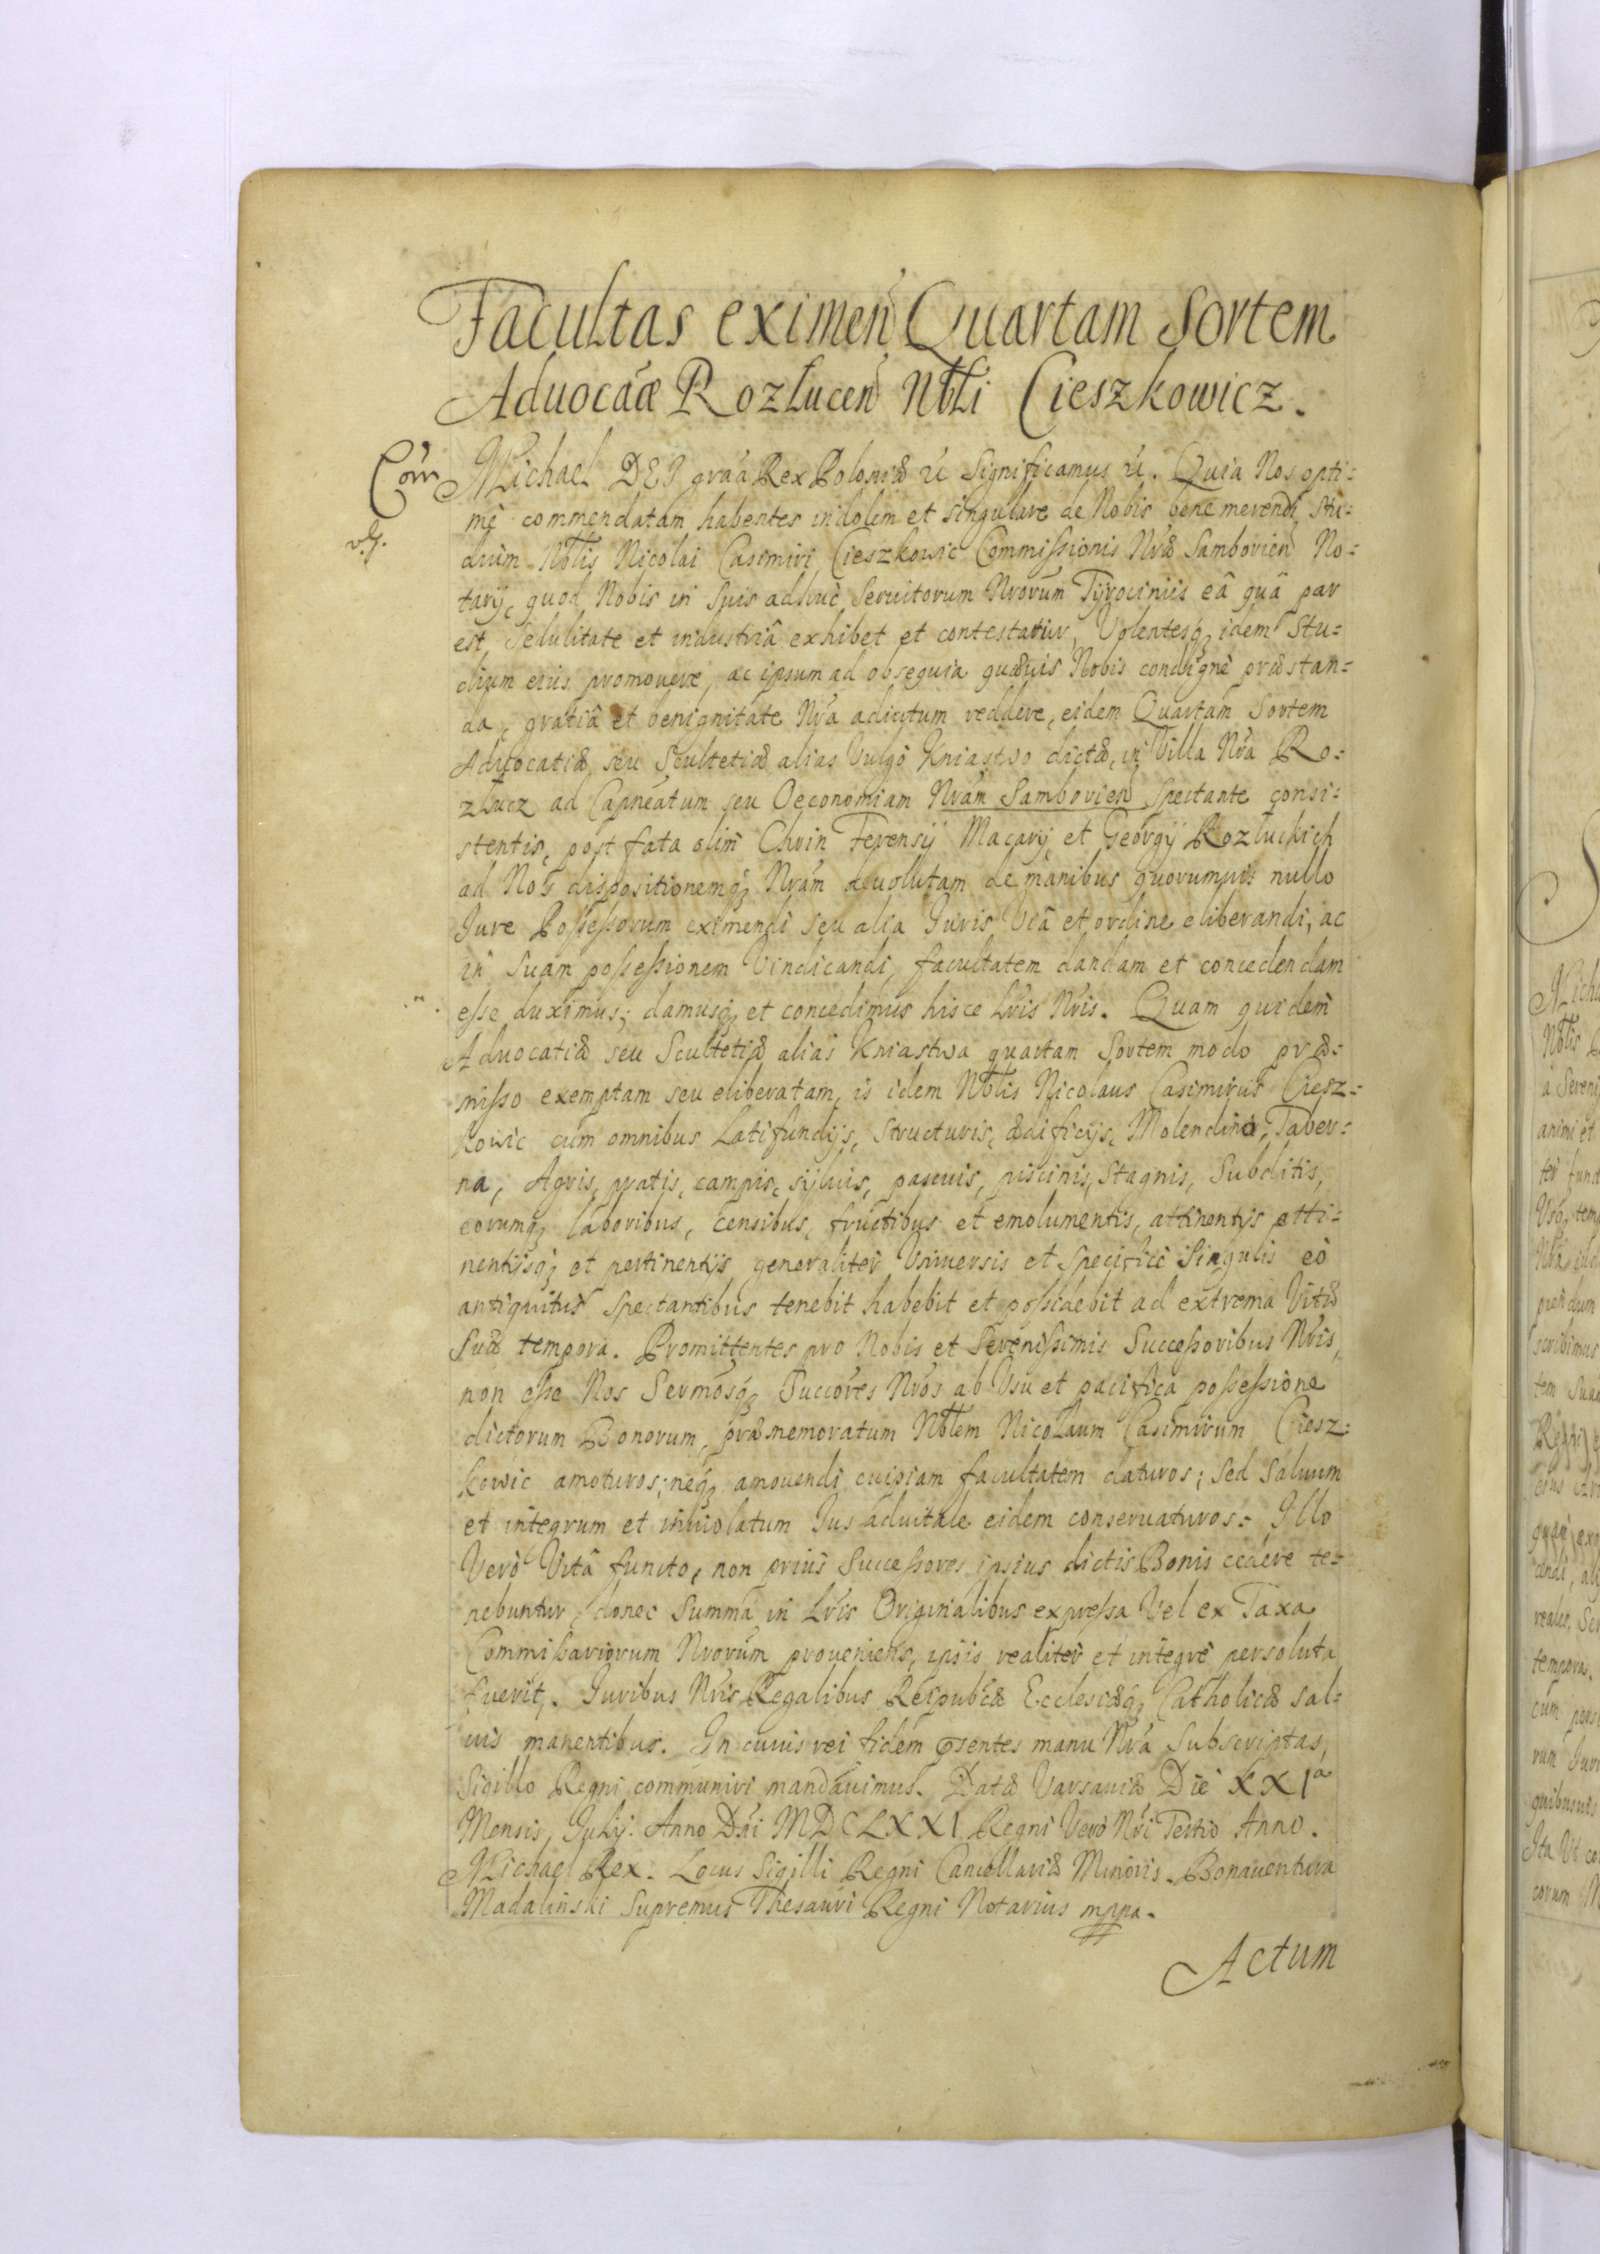 Facultas eximen Quartam Sortem
Aduocãæ Rozłucen Nbli Cieszkowicz.
Com̃ Michael DEI graã Rex Poloniæ &c Significamus &c. Quia Nos opti=
mè commendatam habentes indolem et singulare de Nobis bene merendi Stu=
dium Nblis Nicolai Casimiri Cieszkowic Commissionis Nræ Samborien No=
tarij, quod Nobis in Suis adhuc Seruitorum Nrorum Tyrociniis eâ quâ par
est, Sedulitate et industriâ exhibet et contestatur, Volentesq idem Stu=
dium eius promouere, ac ipsum ad obsequia quæuis Nobis condignè præstan=
da, gratiâ et benignitate Nra adiutum reddere, eidem Quartam Sortem
Aduocatiæ, seu Scultetiæ alias Vulgò Kniastwo dictæ, in Villa Nra Ro=
złucz ad Capneatum seu Oeconomiam Nram Samborien Spectante consi=
stentis, post fata olim Chrin Ferensij Macarij et Georgij Rozłuckich
ad Nos dispositionemq Nram deuolutam de manibus quorumuis nullo
Jure Possessorum eximendi seu alia Juris Viâ et ordine eliberandi, ac
in Suam possessionem Vindicandi, facultatem dandam et concedendam
esse duximus; damusq et concedimus hisce Lris Nris. Quam quidem
Aduocatiæ seu Scultetiæ alias Kniastwa quartam Sortem modo præ=
misso exemptam seu eliberatam, is idem Nblis Nicolaus Casimirus Ciesz=
kowic cum omnibus Latifundijs, Structuris, ædificijs, Molendino, Taber=
na, Agris, pratis, campis, syluis, pascuis, piscinis, Stagnis, Subditis,
eorumq laboribus, Censibus, fructibus et emolumentis, attinentijs atti=
nentijsq et pertinentijs generaliter Vniuersis et Specificè Singulis eò
antiquitus Spectantibus tenebit habebit et possidebit ad extrema Vitæ
Suæ tempora. Promittentes pro Nobis et Serenissimis Successoribus Nris,
non esse Nos Sermosq Succores Nros ab Vsu et pacifica possessione
dictorum Bonorum, præmemoratum Nblem Nicolaum Casimirum Ciesz=
kowic amoturos; neq amouendi cuipiam facultatem daturos; Sed Saluum
et integrum et inuiolatum Jus aduitale eidem conseruaturos. Illo
Verò Vitâ functo, non prius Successores ipsius dictis Bonis cedere te=
nebuntur, donec Summa in Lris Originalibus expressa Vel ex Taxa
Commissariorum Nrorum proueniens, ipsis realiter et integrè persoluta
fuerit. Juribus Nris Regalibus Reipubcæ Ecclesiæq Catholicæ Sal=
uis manentibus. In cuius rei fidem psentes manu Nra Subscriptas,
Sigillo Regni communiri mandauimus. Datæ Varsauiæ Die XXIª
Mensis Julij Anno Dni MDCLXXI Regni Verò Nri Tertio Anno.
Michael Rex. Locus Sigilli Regni Cancellariæ Minoris. Bonauentura
Madalinski Supremus Thesauri Regni Notarius mppa.
Actum